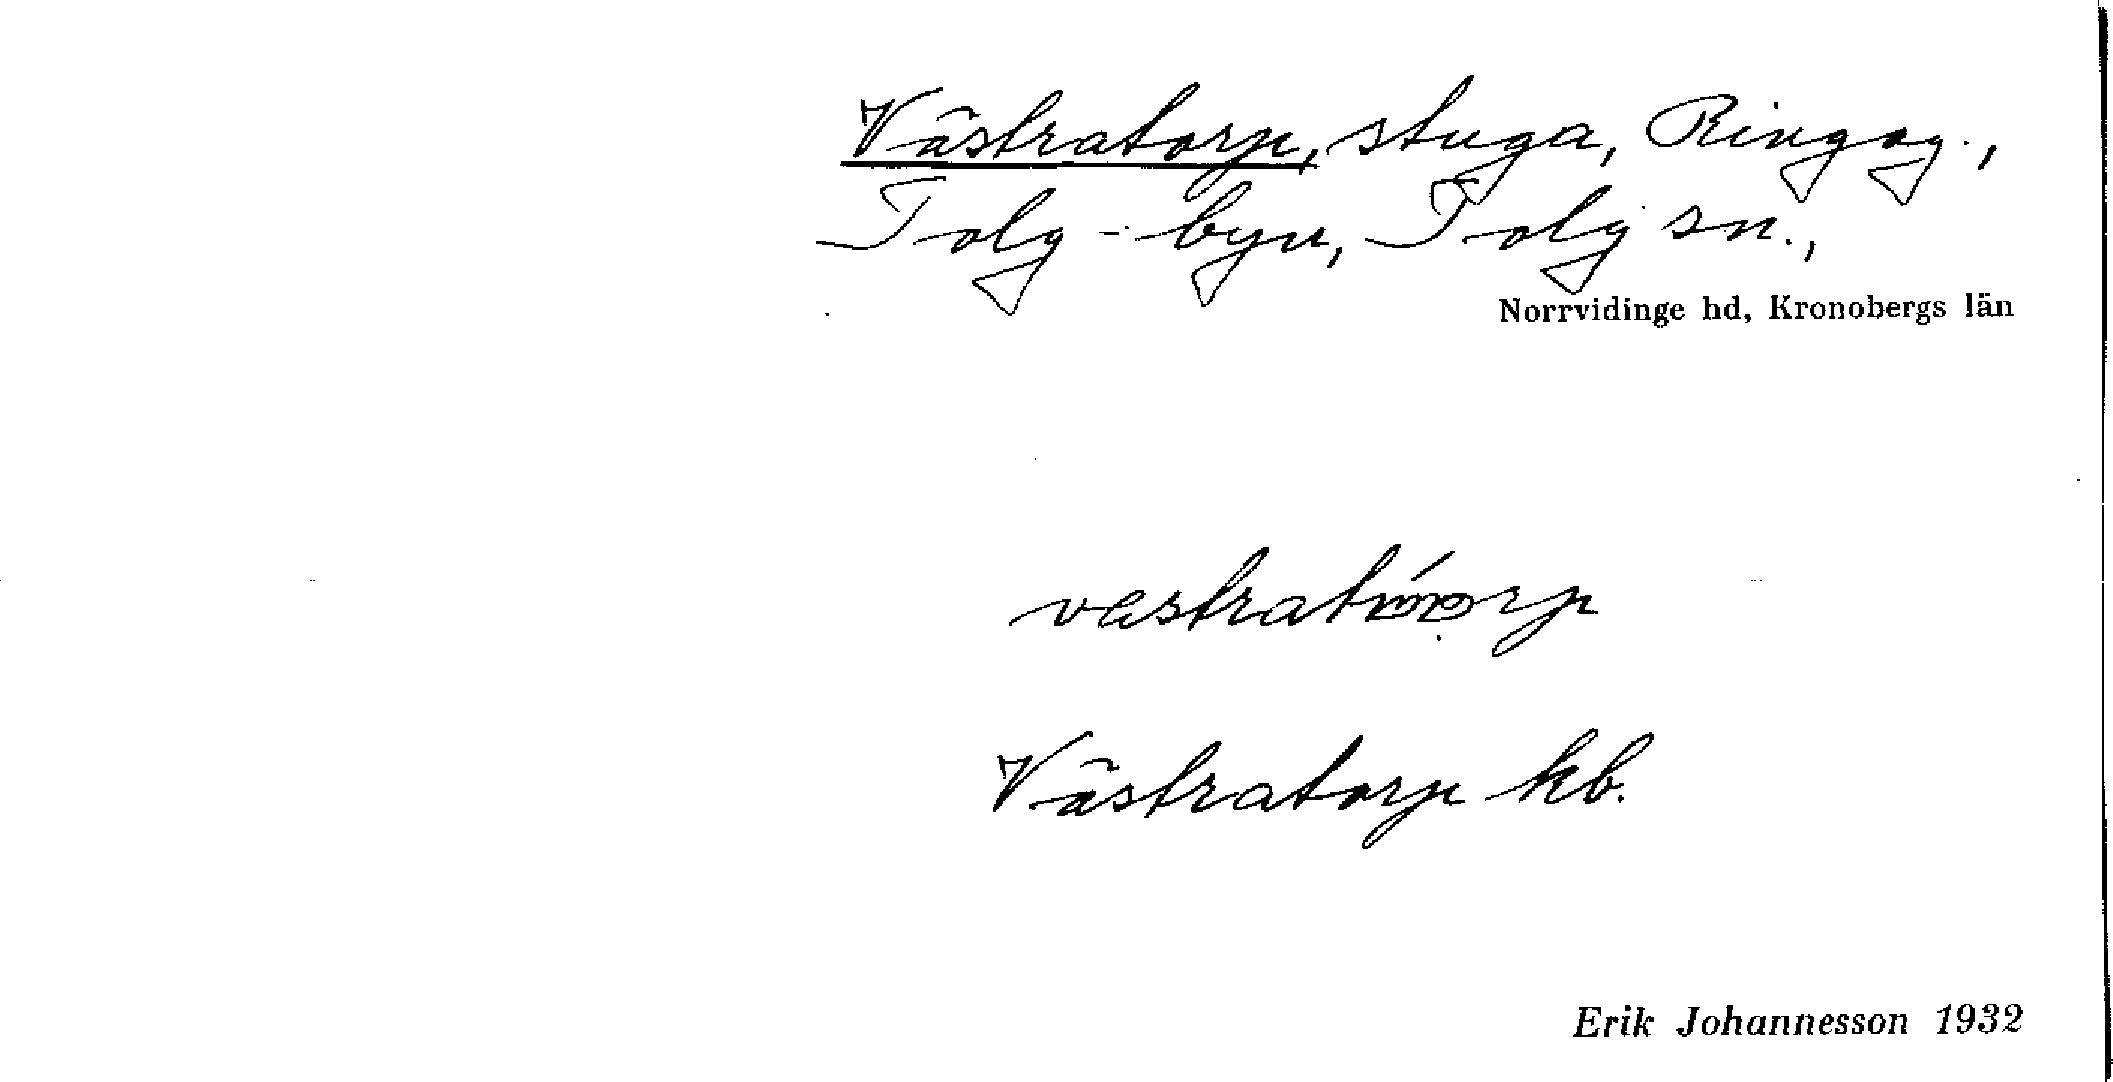 Västratorp, stuga, Ringsg.,
Tolg-byn, Tolg sn.,
Norrvidinge hd, Kronobergs län
Västratorp kb.
Erik Johannesson 1932